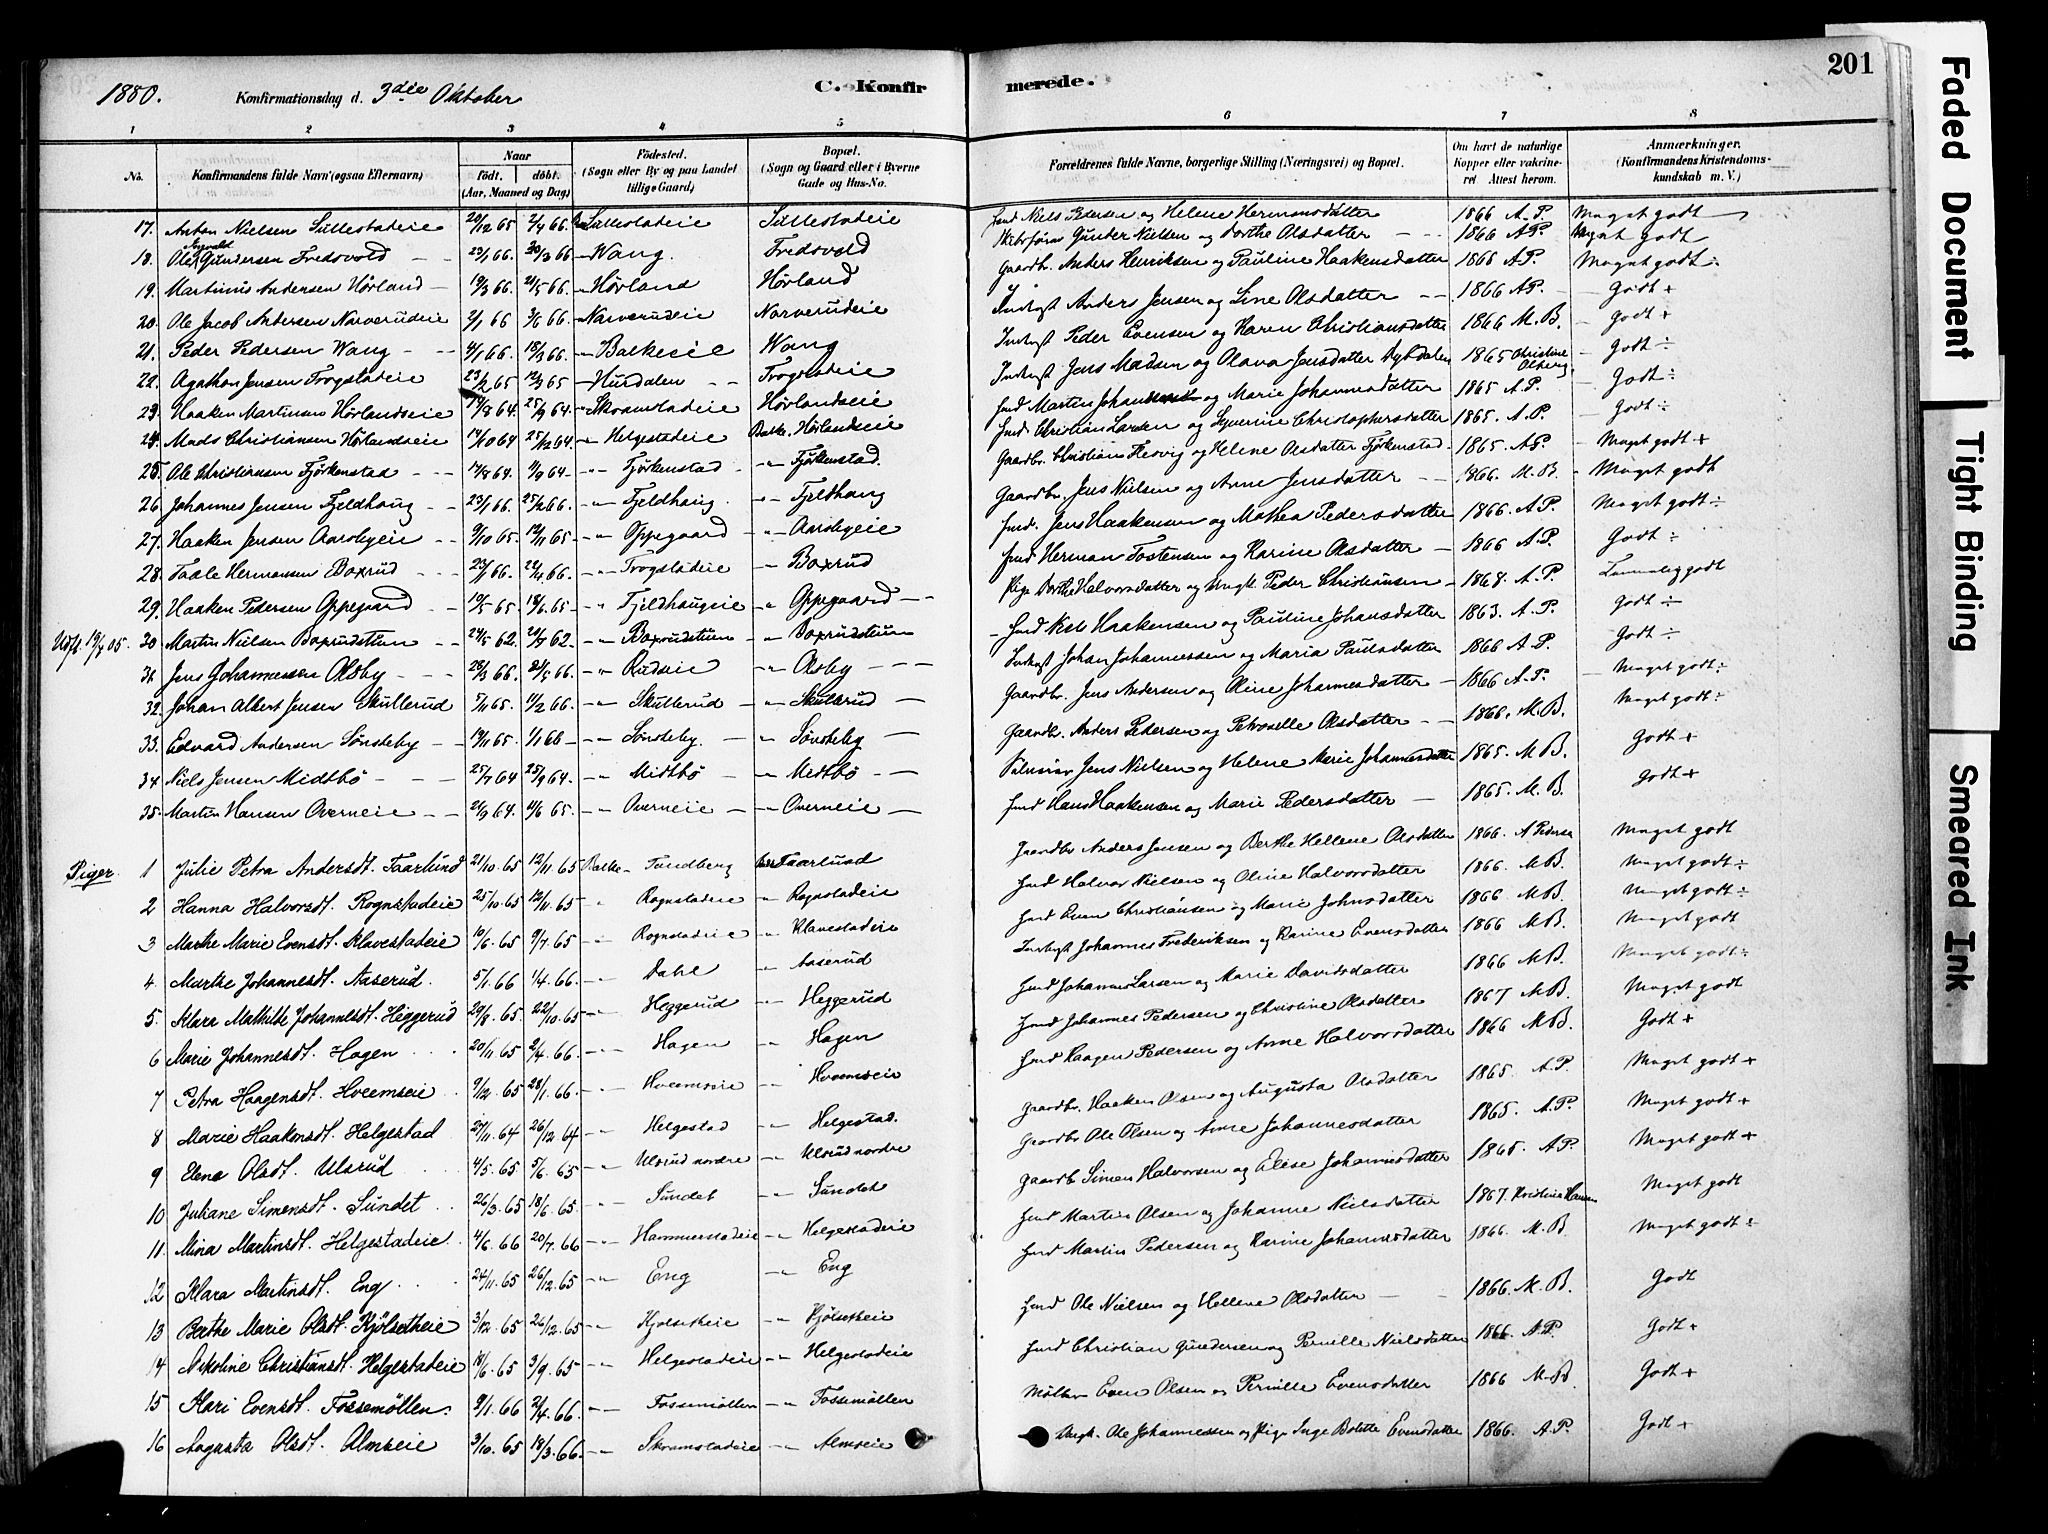 201
1880. Konfirmationsdag d. 3die Oktober C. Konfirmerede.
1 2 3 4 5 6 7 8
No. Konfirmandens fulde Navn (ogsaa Efternavn) Naar født. døbt. (Aar, Maaned og Dag) Fødested. (Sogn eller By og paa Landet tillige Gaard) Bopæl. (Sogn og Gaard eller i Byerne Gade og Hus-No. Forældrenes fulde Navne, borgerlige Stilling (Næringsvei) og Bopæl. Om havt de naturlige Kopper eller vakcineret. Attest herom. Anmærkninger. (Konfirmandens Kristendomskundskab m. V.)
17. Anton Nielsen Sullestadeie 20/12 65 2/4 66 Sullestadeie Sullestadeie Inds Niels Pedersen og Helene Hermansdatter 1866 A.P. Meget godt
18. Ole Ingvald Gundersen Fredsvold 23/1 66. 30/3 66 Wang. Fredsvold Skibsfører Gunder Nielsen og Dorthe Olsdatter 1866 A.P. Meget godt
19. Martinus Andersen Hørland 19/3 66. 21/5 66. Hørland Hørland Gaardbr. Anders Henriksen og Pauline Haakensdatter 1866 A.P. Meget godt ÷
20. Ole Jacob Andersen Narverudeie 2/1 66 3/6 66. Narverudeie Narverudeie Indergst Anders Jensen og Line Olsdatter 1866 A.P. Godt +
21. Peder Pedersen Wang 4/1 66. 18/3 66. Balkeeie Wang Indergst Peder Evensen og Karen Christiansdatter 1866 M.B. Godt +
22. Agathon Jensen Trogstadeie 23/2 65 12/3 65 Hurdalen Trogstadeie Indergst Jens Madsen og Olava Jensdatter Dybdalen 1865 Christine Olberg Godt ÷
23. Haaken Martinsen Hørlandseie 14/8 64. 25/9 64. Skramstadeie Hørlandseie Inds Martin Johannesen og Marie Johannesdatter 1865 A.P. Godt ÷
24. Mads Christiansen Hørlandseie 14/10 64 25/12 64. Helgestadeie Balke. Hørlandseie Inds Christian Larsen og Syverine Christophersdatter 1865. A.P. Godt ÷
25. Ole Christiansen Fjørkenstad 14/8 64. 11/9 64. Fjørkenstad Fjørkenstad. Gaardbr. Christian Flesvig og Helene Olsdatter Fjørkenstad. 1865. A.P. Meget godt +
26. Johannes Jensen Fjeldhaug 23/1 66. 25/2 66. Fjeldhaug Fjeldhaug Gaardbr. Jens Nielsen og Anne Jensdatter 1866. M.B. Meget godt
27. Haaken Jensen Aarsbyeie 9/10 65. 12/11 65 Oppegaard Aarsbyeie Inds. Jens Haakensen og Mathea Pedersdatter 1866 A.P. Meget godt ÷
28. Taale Hermansen Boxrud 23/1 66. 22/4 66. Trogstadeie Boxrud Inds Herman Tostensen og Karine Olsdatter 1866 A.P. Godt ÷
29. Haaken Pedersen Oppegaard 19/5 65 18/6 65 Fjeldhaugeie Oppegaard Pige Dorthe Halvorsdatter og Ungk. Peder Christiansen 1868. A.P. Temmelig godt
Udfl. 19/4 05. 30. Martin Nielsen Boxrudstuen 24/5 62. 20/7 62. Boxrudstuen Boxrudstuen Inds Niels Haakensen og Pauline Johansdatter 1863. A.P. Godt ÷
31. Jens Johannessen Olsby 26/3 66. 21/5 66. Rudseie Olsby Indergst Johan Johannessen og Maria Paulsdatter 1866 A.P. Godt ÷
32. Johan Albert Jensen Skullerud 5/11 65. 11/2 66. Skullerud Skullerud Gaardbr. Jens Andersen og Oline Johannesdatter 1866 A.P. Meget godt ÷
33. Edvard Andersen Sønsteby 19/11 65. 1/1 66 Sønsteby. Sønsteby Gaardbr. Anders Pedersen og Petronelle Olsdatter 1866. M.B. Meget godt ÷
34. Niels Jensen Midtbø 25/7 64 25/9 64. Midtbø Midtbø Jens Nielsen og Helene Marie Johannesdatter 1865. M.B. Godt +
35. Martin Hansen Overneie 21/9 64. 11/6 65. Overneie Overneie Inds Hans Haakensen og Marie Pedersdatter 1865. M.B. Godt +
Piger. 1 Julie Petra Andersdt. Taarlund 21/10 65 12/11 65 Balke Sundberg Taarlund Gaardbr Anders Jensen og Berthe Hellene Olsdatter 1866. A Pedersen Meget godt
2 Hanna Halvorsdt. Rognstadeie 25/10 65 12/11 65 Rognstadeie Rognstadeie Inds Halvor Nielsen og Oline Halvorsdatter 1866. M.B. Meget godt ÷
3 Marthe Marie Evensdt. Klavestadeie 10/6. 65 9/7. 65 Rognstadeie Klavestadeie Inds Even Christiansen og Marie Johnsdatter 1866 M.B. Meget godt ÷
4. Marthe Johannesdt. Aaserud. 5/1. 66 1/4. 66 Dahl Aaserud Indergst Johannes Frederiksen og Karine Evensdatter 1866 M.B. Meget godt
5. Klara Mathilde Johannesdt. Heggerud 20/8. 65. 22/10. 65 Heggerud Heggerud Inds Johannes Larsen og Marie Davidsdatter 1866 M.B. Meget godt ÷
6 Marie Johannesdt. Hagen 20/11 65 2/4. 66. Hagen Hagen Inds Johannes Pedersen og Christine Olsdatter 1867 M.B. Meget godt
7 Petra Haagensdt. Hveemseie 9/12. 65 28/1. 66. Hveemseie Hveemseie Inds Haagen Pedersen og Anne Halvorsdatter 1866 M.B. Godt +
8 Marie Haakensdt. Helgestad 27/11. 64 26/12. 64 Helgestad Helgestad. Gaardbr. Haaken Olsen og Augusta Olsdatter 1865. A.P. Meget godt +
9 Elena Olsdt. Ulsrud 4/5. 65 5/6. 65 Ulsrud nordre Ulsrud nordre Gaardbr Ole Olsen og Anne Johannesdatter 1865. A.P. Meget godt +
10 Juliane Simensdt. Sundet 26/3. 65 18/6. 65 Sundet Sundet Gaardb Simen Halvorsen og Elise Johannesdatter 1865. A.P. Meget godt +
11. Mina Martinsdt. Helgestadeie. 4/6. 66 20/7. 66 Hammerstadeie Helgestadeie Inds Martin Olsen og Johanne Nielsdatter 1867. Kristine Hansen Meget godt
12 Klara Martinsdt. Eng 24/11. 65 26/12. 65 Eng Eng Inds Martin Pedersen og Karine Johannesdatter 1866. M.B Meget godt ÷
13 Berthe Marie Olsdt. Kjølsetheie 3/12. 65 26/12. 65 Kjølsetheie Kjølsetheie Inds Ole Nielsen og Hellene Olsdatter 1866. M.B. Godt
14 Nikoline Christiansdt. Helgestadeie 18/6. 65 3/9. 65 Helgestadeie Helgestadeie Inds Christian Gundersen og Pernille Nielsdatter 1866. A.P. Godt +
15 Kari Evensdt. Fossemøllen. 9/1. 66 2/4. 66. Fossemøllen Fossemøllen Møller Even Olsen og Pernille Evensdatter 1866 M.B Godt +
16 Augusta Olsdt. Almseie 3/10. 65 18/3. 66. Skramstadeie Almseie Ungk. Ole Johannessen og Pige Inge Bolette Evensdatter 1866. A.P. Godt +
Faded Document
Tight Binding
Smeared Ink